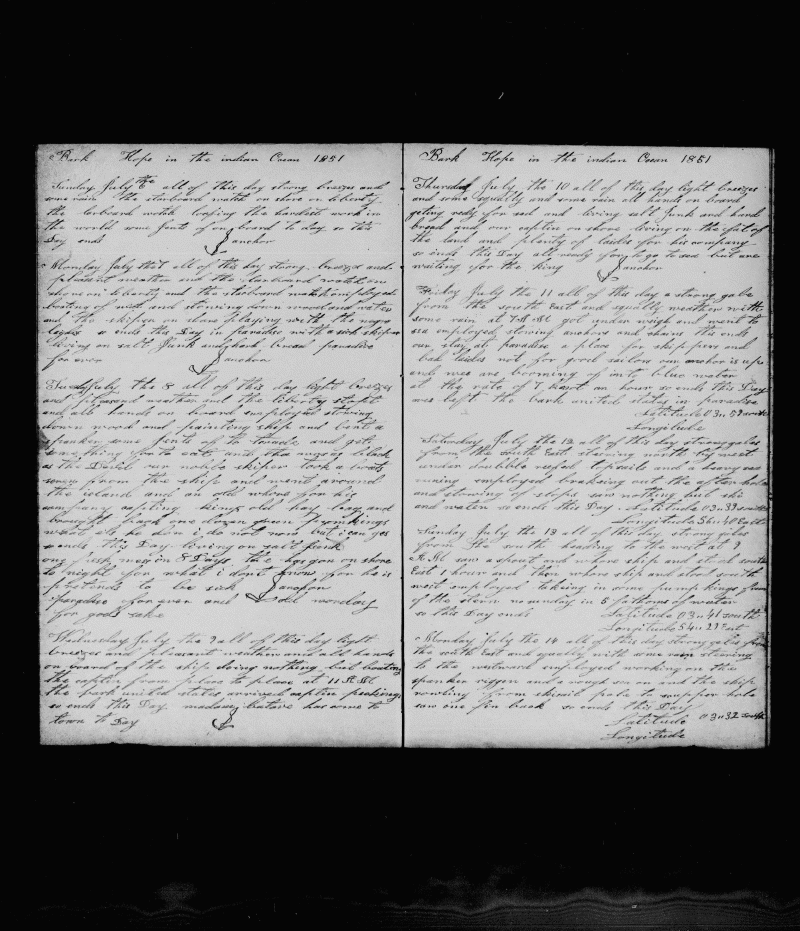 Bark Hope in the indian Ocean 1851
Sunday July 6th all of this day strong breezes and
some rain the starboard watch on shore on liberty
the larboard watch the hardest work in
the world some fents of on board to day so this
Day ends anchor
Monday July the 7 all of this day strong breezes and
plesent weather and the watch on
shore on liberty and the starboard watch employed
boating of wood and stowing down wood and water
and the skiper on shore playing with the negro
so ends the Day in paradise with a sick skiper
living on salt Junk and hard bread paradise
for ever anchor
Tuesday July the 8 all of this day light breezes
and plesand weather and the liberty stopt
and all hands on board employed stowing
down wood and painting ship and bent a
spanker some fents of to traade and got
some thing for to eat and the negros black
as the Devil our noble skiper took a boat
from the ship and went around
the island and an old whore for his
company kings old hay bag and
brought back one dozen green promkings
what els he don i do not now but i can ges
so ends this Day living on salt Junk
8 Days the has gon on shore
to night for what i dont know for he is
pretends to be sick anchor
paradise for ever and del monday
for gods sake
Wednesday July the 9 all of this day light
breezes and plesant weather and all hands
on board of the ship doing nothing but boating
the captin from place to place at 11 A.M.
the bark united states arrived captin
so ends this Day has come to
town to Day
Bark Hope in the indian Ocean 1851
Thursday July the 10 all of this day light breezes
and some squally and some rain all hands on board
geting redy for sea and living salt Junk and hard
bread and our captin on shore living on the fat of
the land and plenty of ladies for his company
so ends this Day all ready for to go to sea but are
waiting for the king anchor
Friday July the 11 all of this day a strong gale
from the south East and squally weather with
some rain at 7 A.M. got under weigh and went to
sea employed stowing anchors and chains this ends
our stay at paradise a place for skippers and
bad ladies not for good sailors our anchor is up
and wee are borning of into blue water
at the rate of 7 knout an hour so ends this Day
wee left the bark united states in paradise
Latitude 03 n 59 south
Longitude
Saturday July the 12 all of this day strong gales
from the south East steering north by west
under doubble reefed topsails and a heavy sea
runing employed brakeing out the after hole
and stowing of slops saw nothing but ski
and water so ends this Day Latitude 03 n 39 south
Longitude 56 n 40 East
Sunday July the 13 all of this day strong gales
from the south heading to the west at 9
A.M. saw a spout and whore ship and stood south
East 1 hour and then whore ship and stood south
west employed taking in some pumpkings from
of the stern no sunday in 5 fathoms of water
so this Day ends Latitude 03 n 41 south
Longitude 54 n 29 East
Monday July the 14 all of this day strong gales from
the south East and squally with some rain steering
to the westward employed working on the
spanker riggen and a rough sea on and the ship
rowling from skisail pole to scupper hole
saw one fin back so ends this Day
Latitude 03 n 32 south
Longitude